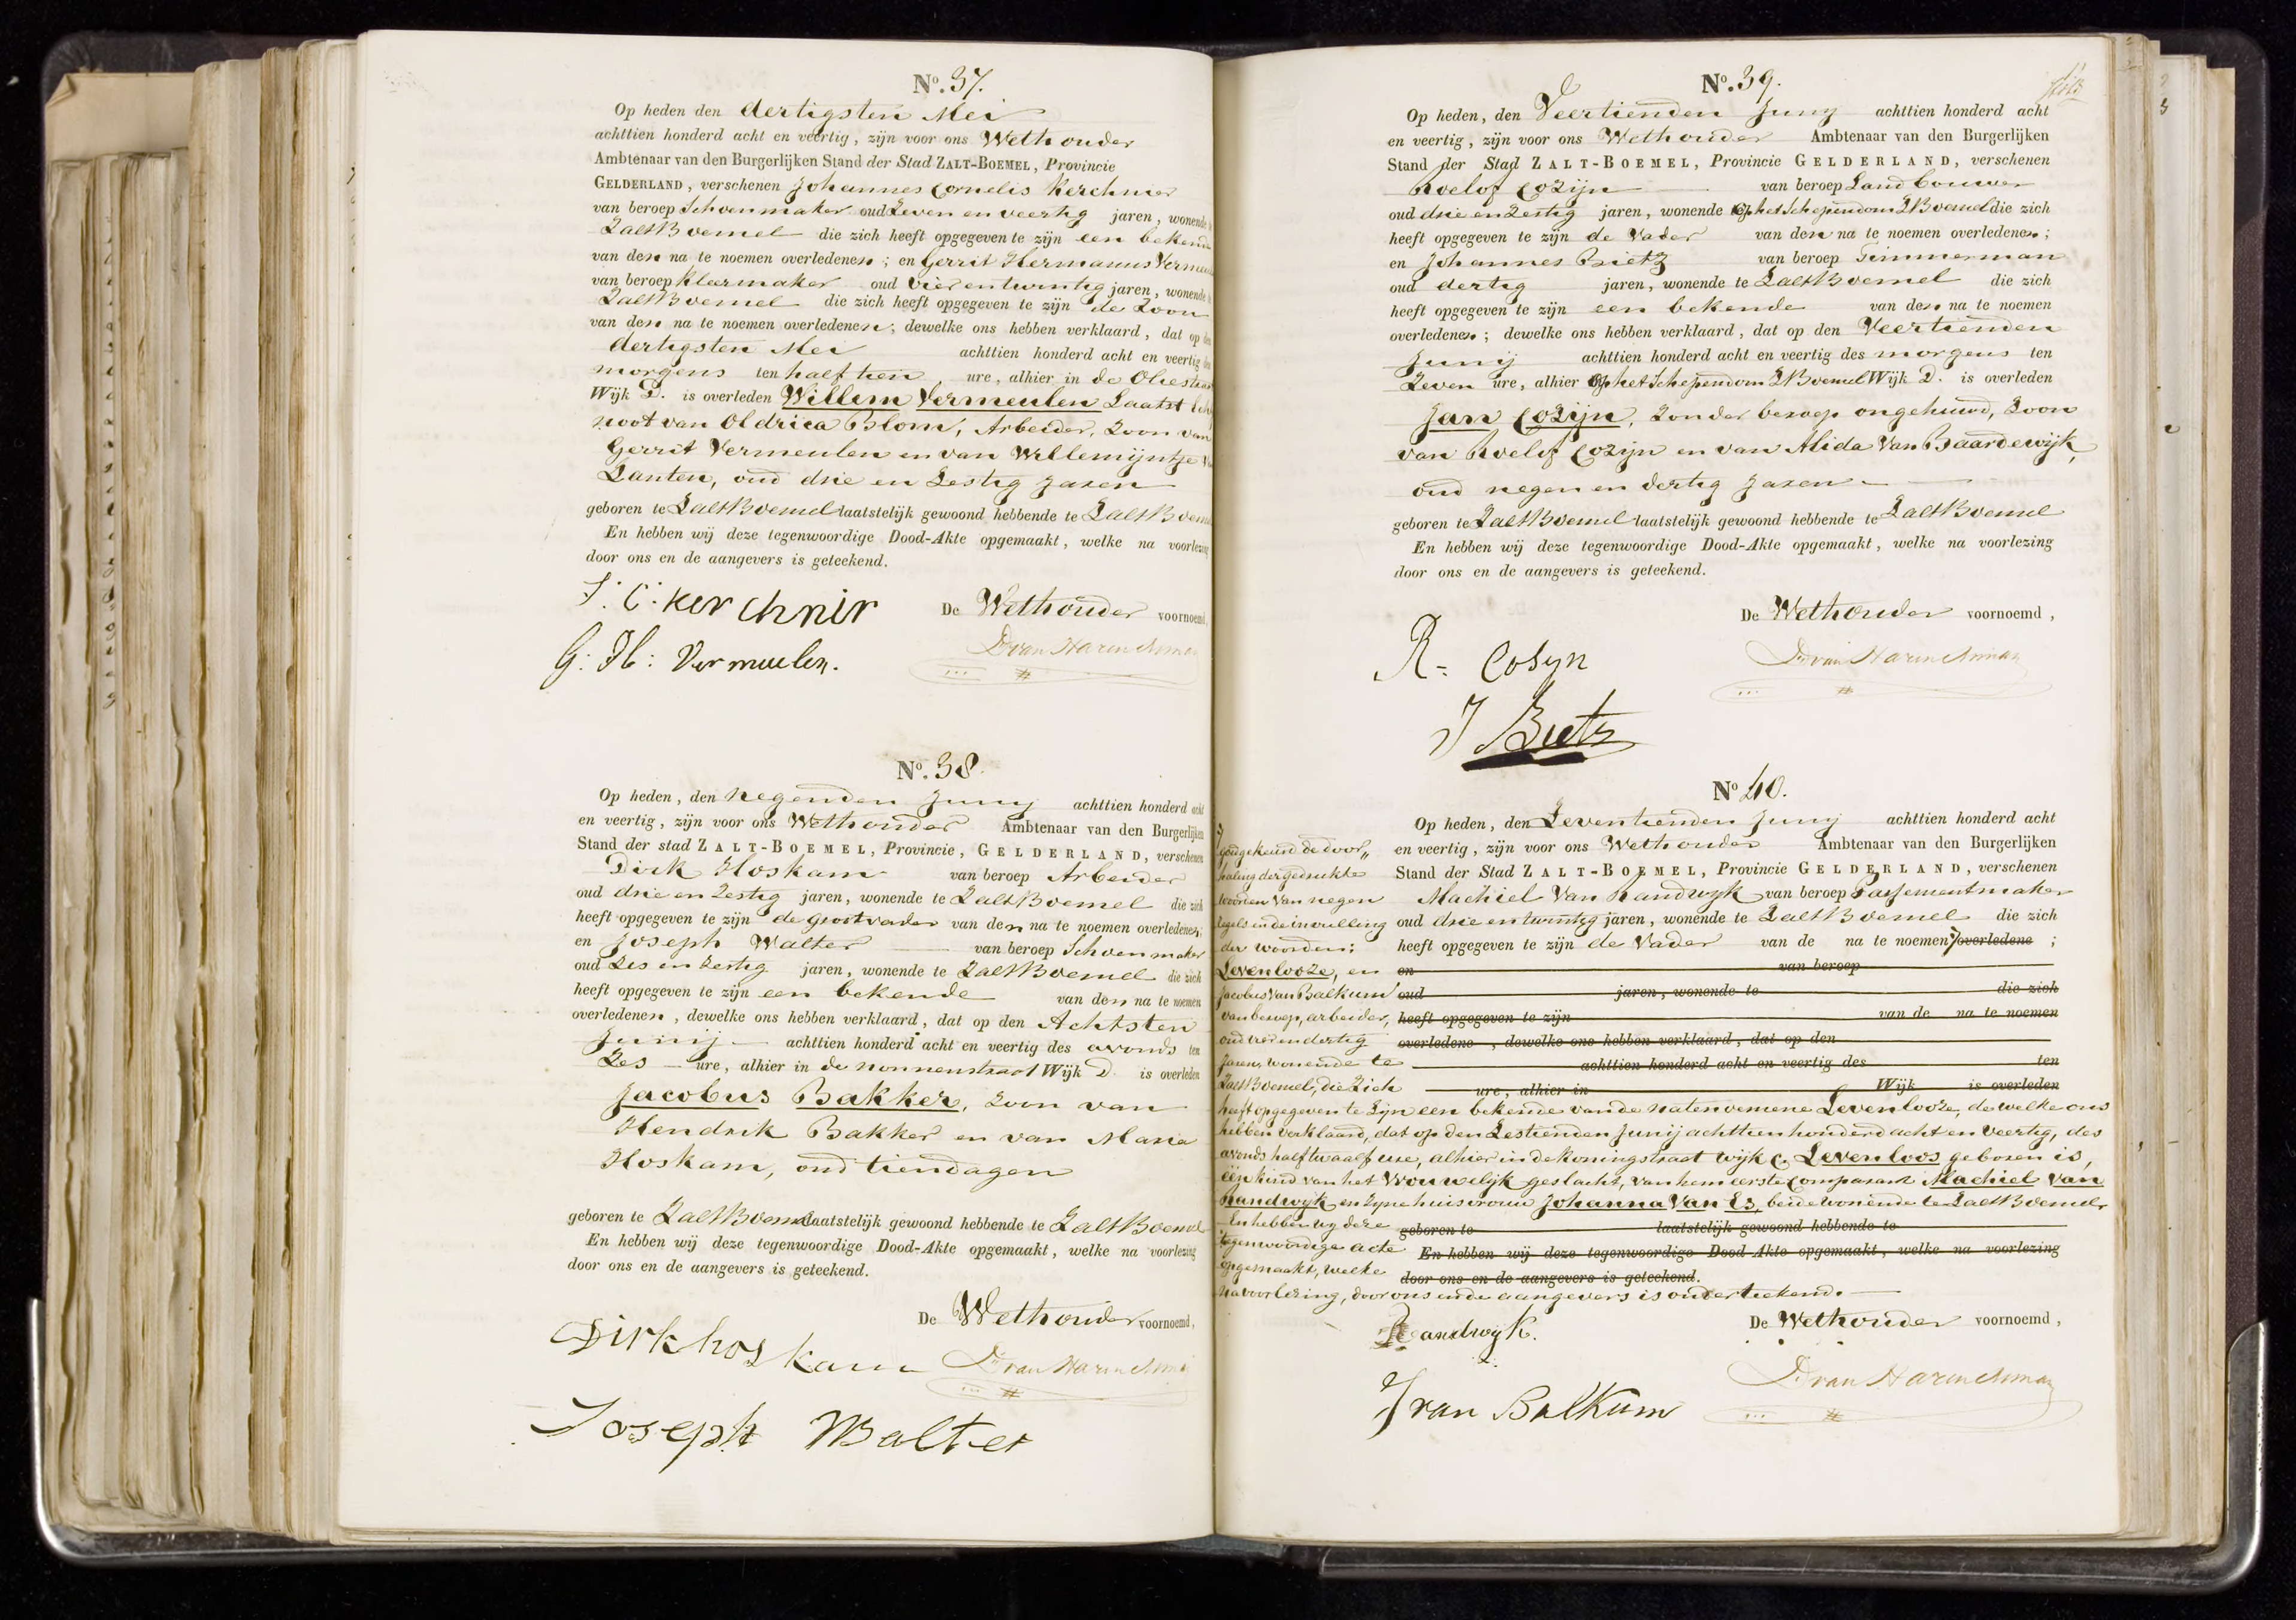 No. 37.
Op heden den dertigsten Mei
achttien honderd acht en veertig, zijn voor ons Wethouder
Ambtenaar van den Burgerlijken Stand der Stad ZALT-BOEMEL, Provincie
GELDERLAND, verschenen Johannes Cornelis Kerchner
van beroep Schoenmaker oud Zeven en veertig jaren, wonende
ZaltBoemel die zich heeft opgegeven te zijn een bekende
van den na te noemen overledenen; en Gerrit Hermanus Vermeu
van beroep kleermaker oud vier en twintig jaren, wonende
ZaltBoemel die zich heeft opgegeven te zijn de Zoon
van den na te noemen overledenen; dewelke ons hebben verklaard, dat op den
dertigsten Mei achttien honderd acht en veertig des
morgens ten half tien ure, alhier in de Oliestraat
Wijk D. is overleden Willem Vermeulen Laatst Echt
noot van Oldrica Blom, Arbeider, Zoon van
Gerrit Vermeulen en van Willemijntje
Zanten, oud drie en Zestig Jaren
geboren te ZaltBoemel laatstelijk gewoond hebbende te ZaltBoemel
En hebben wij deze tegenwoordige Dood-Akte opgemaakt, welke na voorlezing
door ons en de aangevers is geteekend.
J. C. kerchnir De Wethouder voornoemd,
G: H: Vermeulen.
No. 38.
Op heden, den negenden Juny achttien honderd acht
en veertig, zijn voor ons Wethouder Ambtenaar van den Burgerlijken
Stand der stad ZALT-BOEMEL, Provincie, GELDERLAND, verschenen
Dirk Hoskam van beroep Arbeider
oud drie en Zestig jaren, wonende te ZaltBoemel die zich
heeft opgegeven te zijn de grootvader van den na te noemen overledenen;
en Joseph Walter van beroep Schoenmaker
oud Zes en Zestig jaren, wonende te ZaltBoemel die zich
heeft opgegeven te zijn een bekende van den na te noemen
overledenen, dewelke ons hebben verklaard, dat op den Achtsten
Junij achttien honderd acht en veertig des avonds ten
Zes ure, alhier in de nonnenstraat Wijk D is overleden
Jacobus Bakker, Zoon van
Hendrik Bakker en van Maria
Hoskam, oud tiendagen
geboren te ZaltBoemel laatstelijk gewoond hebbende te ZaltBoemel
En hebben wij deze tegenwoordige Dood-Akte opgemaakt, welke na voorlezing
door ons en de aangevers is geteekend.
De Wethouder voornoemd,
Dirk hoskam
Joseph Walter
No. 39.
Op heden, den Veertienden Juny achttien honderd acht
en veertig, zijn voor ons Wethouder Ambtenaar van den Burgerlijken
Stand der Stad ZALT-BOEMEL, Provincie GELDERLAND, verschenen
Roelof Cozijn van beroep Landbouwer
oud drie en Zestig jaren, wonende op het Schependom ZBoemel die zich
heeft opgegeven te zijn de Vader van den na te noemen overledenen;
en Johannes Bietz van beroep Timmerman
oud dertig jaren, wonende te ZaltBoemel die zich
heeft opgegeven te zijn een bekende van den na te noemen
overledenen; dewelke ons hebben verklaard, dat op den Veertienden
Junij achttien honderd acht en veertig des morgens ten
Zeven ure, alhier op het Schependom ZBoemel Wijk D. is overleden
Jan Cozijn, Zonder beroep ongehuwd, Zoon
van Roelof Cozijn en van Alida Van Baardewijk,
oud negen en dertig Jaren
geboren te ZaltBoemel laatstelijk gewoond hebbende te ZaltBoemel
En hebben wij deze tegenwoordige Dood-Akte opgemaakt, welke na voorlezing
door ons en de aangevers is geteekend.
De Wethouder voornoemd,
R= Cosyn
J Bietz
No 40.
Op heden, den Zeventienden Juny achttien honderd acht
en veertig, zijn voor ons Wethouder Ambtenaar van den Burgerlijken
Stand der Stad ZALT-BOEMEL, Provincie GELDERLAND, verschenen
Machiel Van Randwyk van beroep Passementmaker
oud drie en twintig jaren, wonende te ZaltBoemel die zich
heeft opgegeven te zijn de Vader van de na te noemen overledene ;
en van beroep
oud jaren, wonende te die zich
heeft opgegeven te zijn van de na te noemen
overledene , dewelke ons hebben verklaard, dat op den
achttien honderd acht en veertig des ten
ure, alhier in Wijk is overleden
goedgekeurd de door„
haling der gedrukte
woorden Van negen
regels en de invulling
der woorden:
Levenlooze, en
Jacobus Van Balkum
van beroep, arbeider,
oud en dertig
Jaren, wonende te
ZaltBoemel, die Zich
heeft opgegeven te Zijn een bekende van de natenoemene Levenlooze, de welke ons
hebben verklaard, dat op den Zestienden Junij achttienhonderd acht en Veertig, des
avonds half twaalf ure, alhier in de koningstraat wijk C. Levenloos geboren is,
een kind van het Vrouwelijk geslacht, van hem eerste Comparant Machiel Van
Randwyk en Zyne huisvrouw Johanna Van Es, beide wonende te ZaltBoemel,
En hebben wy deze
tegenwoordige acte
opgemaakt, welke
geboren te laatstelijk gewoond hebbende te
En hebben wij deze tegenwoordige Dood-Akte opgemaakt, welke na voorlezing
door ons en de aangevers is geteekend.
na voorlezing, door ons en de aangevers is onderteekend.
De Wethouder voornoemd,
Randwyk.
J van Balkum